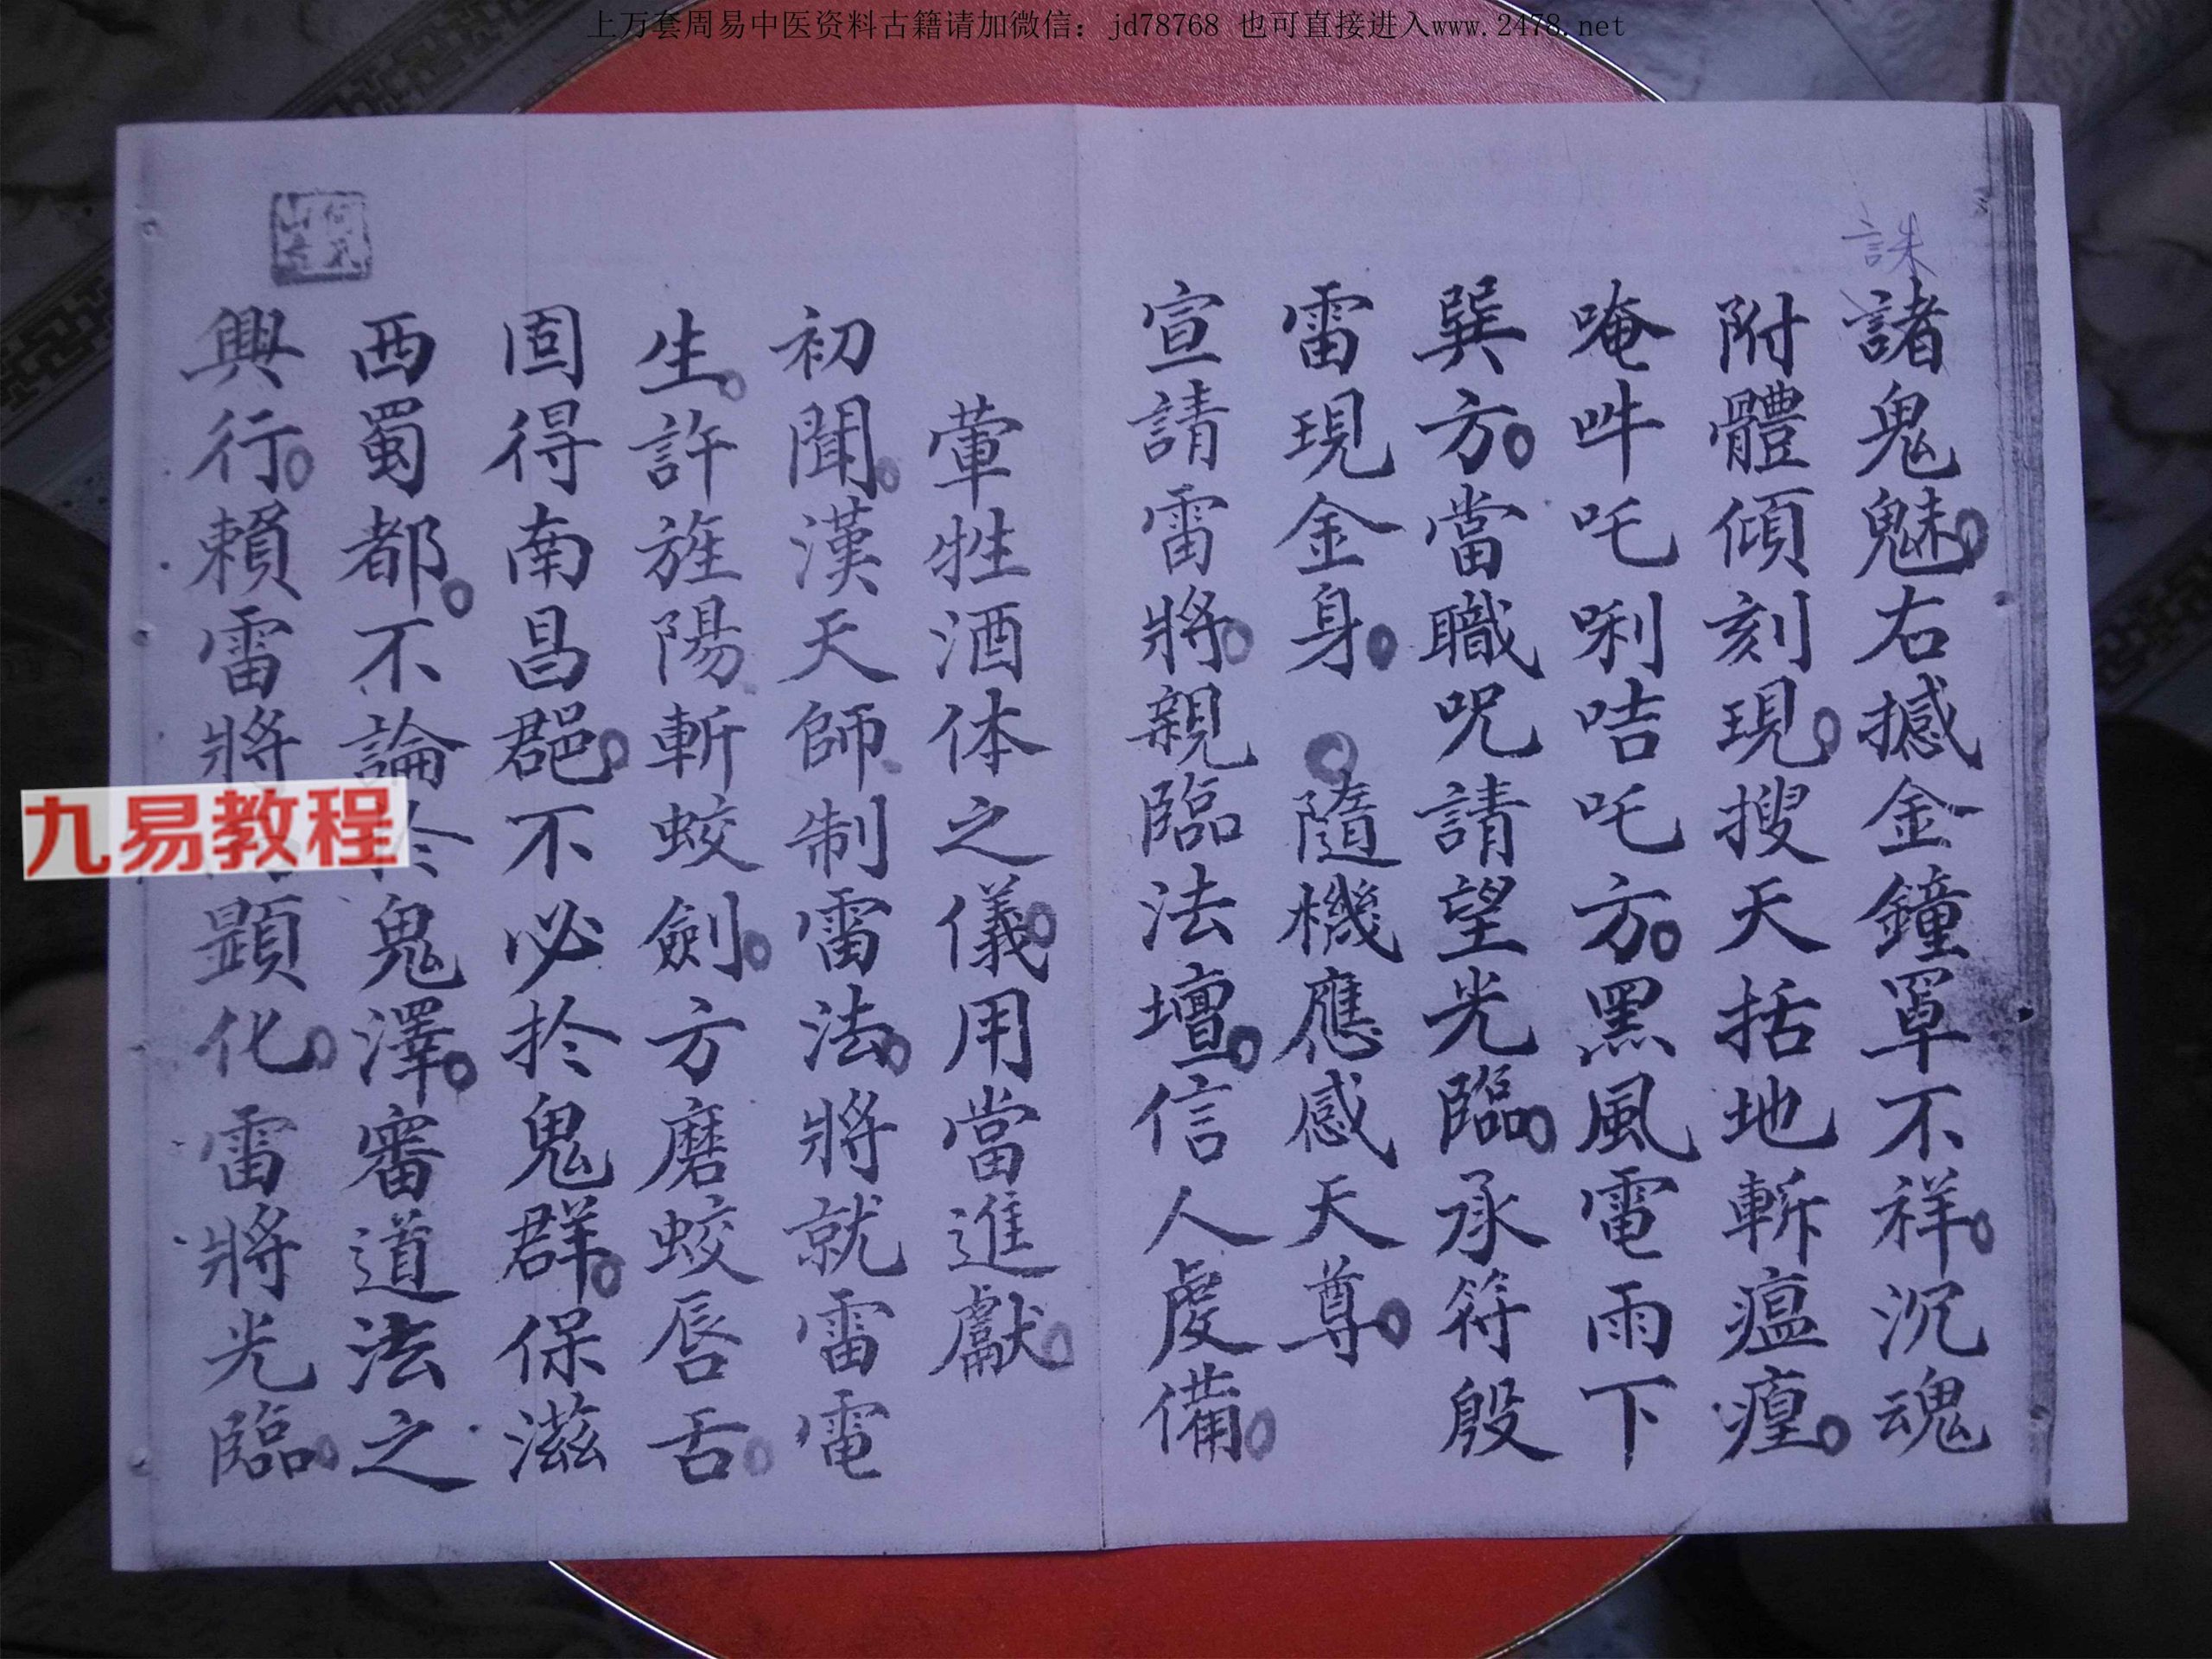 上万套周易中医资料古籍请加微信：jd78768 也可直接进入www.2478.net
誅
諸鬼魅。右撼金鐘罩不祥。沉魂
附體傾刻現。搜天括地斬瘟㾮。
唵吽吒唎咭吒方。黑風電雨下
巽方。當職呪請望光臨。承符殷
雷現金身。○隨機應感天尊。
宣請雷將。親臨法壇。信人虔備。
葷牲酒体之儀。用當進獻。
初聞。漢天師制雷法。將就雷電
生。許旌陽斬蛟劍。方磨蛟唇舌。
固得南昌郡。不必扵鬼群。保滋
西蜀都。不論於鬼澤。審道法之
興行。賴雷將顕化。雷將光臨。
九易教程